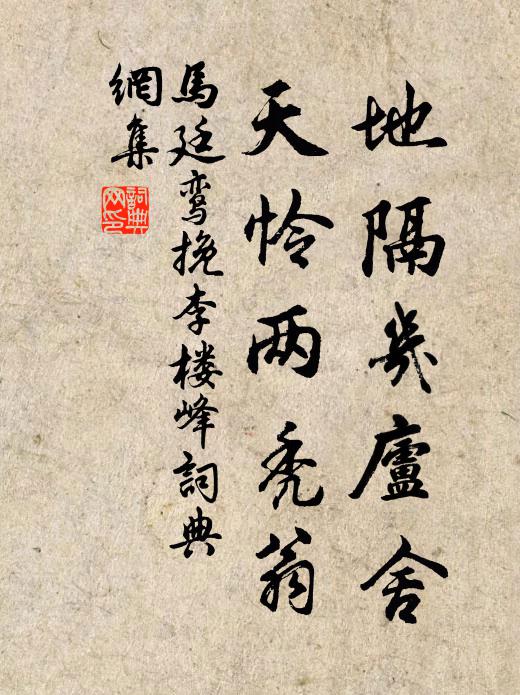 地隔幾廬舍
天怜两秃翁
馬廷鸾挽李楼峰詞典
網集
詞典网印